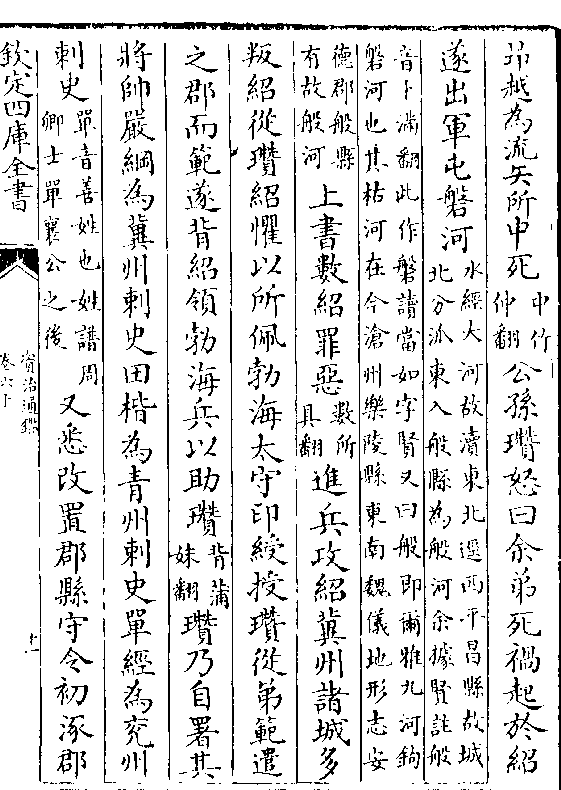 昻越為流矢所中死中竹仲翻公孫瓚怒曰余弟死禍起於紹
遂出軍屯磐河水經大河故瀆東北逕西平昌縣故城北分𣲖東入般縣為般河余據賢註般
音卜滿翻此作磐讀當如字賢又曰般即爾雅九河鉤
磐河也其枯河在今滄州樂陵縣東南魏儀地形志安
德郡般縣有故般河上書數紹罪惡數所具翻進兵攻紹冀州諸城多
叛紹從瓚紹懼以所佩勃海太守印綬授瓚從弟範遣
之郡而範遂背紹領勃海兵以助瓚背蒲妹翻瓚乃自署其
將帥嚴綱為冀州刺史田楷為青州刺史單經為兖州
刺史單音善姓也姓譜周卿士單襄公之後又悉改置郡縣守令初涿郡
欽定四庫全書
資治通鑑
卷六十
十一